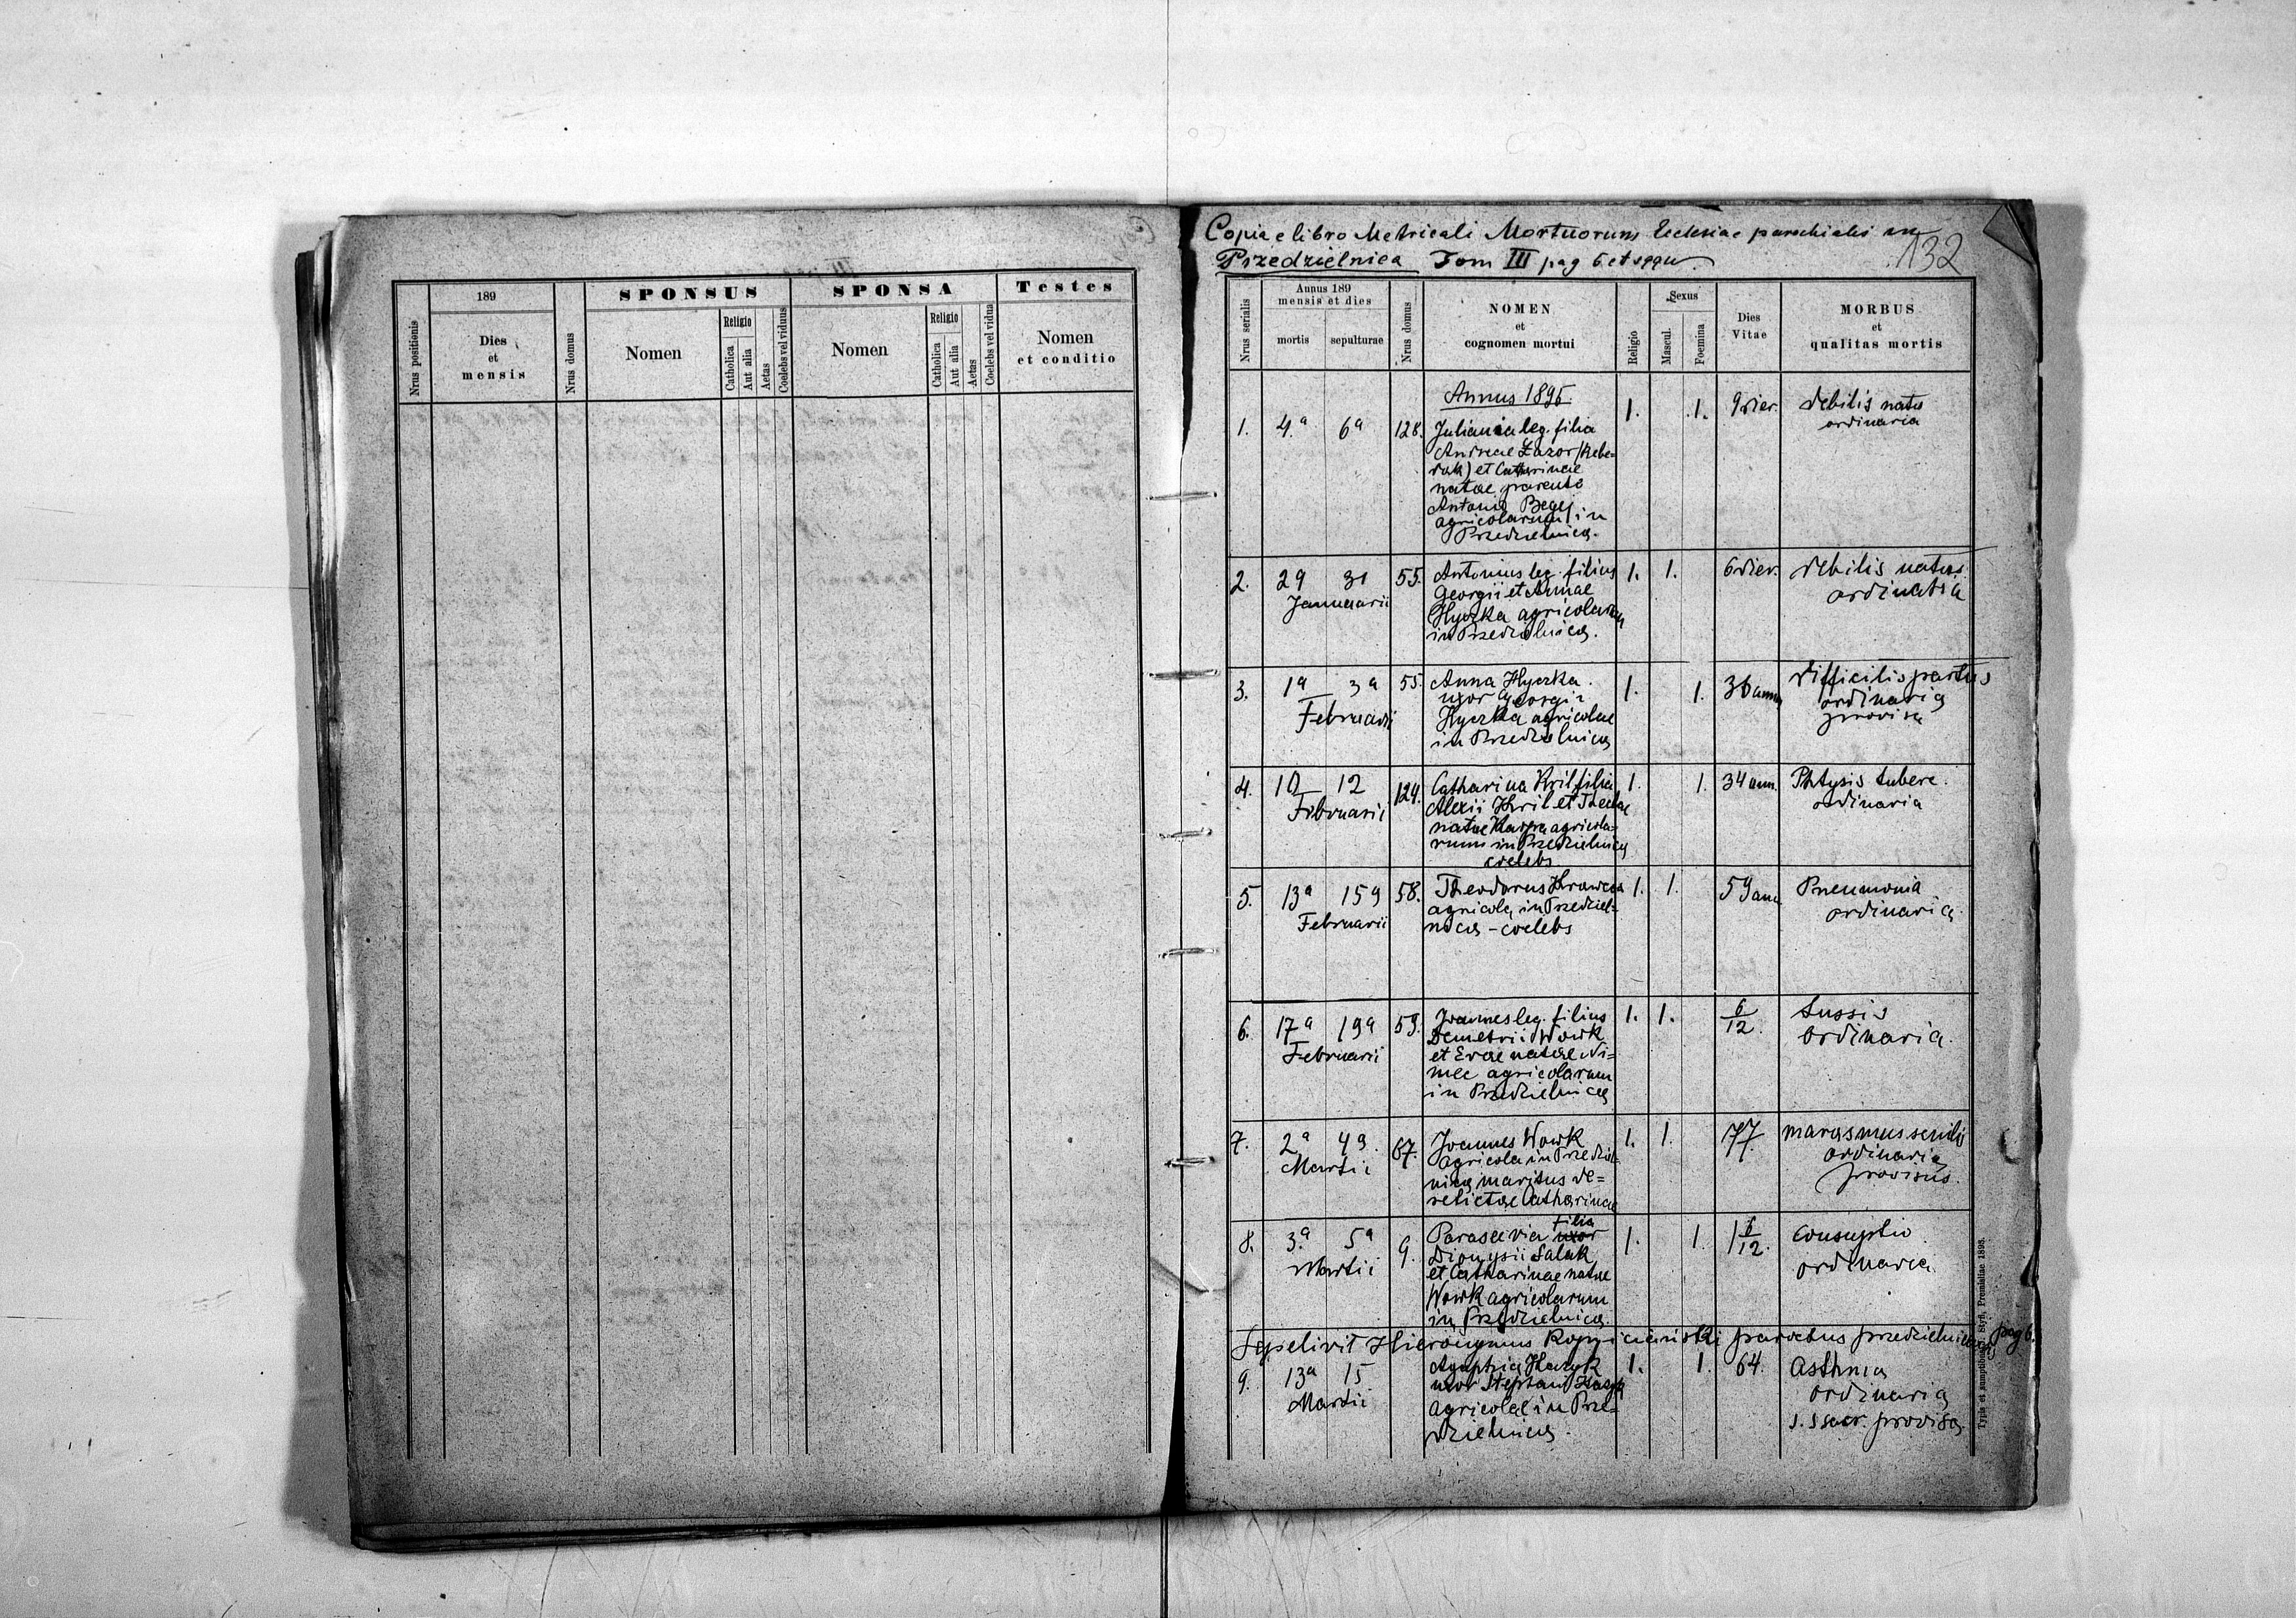 189
SPONSUS
SPONSA
Testes
Nrus positionis
Dies
et
mensis
Nrus domus
Nomen
Religio
Catholica
Aut alia
Aetas
Coelebs vel viduus
Nomen
Religio
Catholica
Aut alia
Aetas
Coelebs vel vidua
Nomen
et conditio
Copia e libro Metricali Mortuorum Ecclesiae parochialis in
Przedzielnica Tom III pag 6 et sqqu
132
Nrus serialis
Annus 189
mensis et dies
mortis
sepulturae
Nrus domus
NOMEN
et
cognomen mortui
Religio
Sexus
Mascul.
Foemina
Dies
Vitae
MORBUS
et
qualitas mortis
Annus 1895.
1. 4.a 6a 128. Juliania leg. filia 1. 1. 9 dier. debilis nata
ordinaria
Andreae Łazor (Rebe-
dak) et Catharinae
natae parente
Antonio Begej
agricolarum in
Przedzielnica.
2. 29 31 55. Antonius leg. filius 1. 1. 6 dier. debilis natus
Januarii Georgii et Annae ordinaria
Hyczka agricolarum
in Przedzielnica.
3. 1a 3a 55. Anna Hyczka 1. 1. 36 ann difficilis partus
Februarii uxor Georgii ordinaria
Hyczka agricolae provisa
in Przedzielnica
4. 10 12 124. Catharina Kril filia 1. 1. 34 ann. Phtysis tuberc.
Februarii Alexii Kril et Theclae ordinaria
natae Karpa agricola-
rum in Przedzielnica
coelebs
5. 13a 15a 58. Theodorus Krawcza 1. 1. 59 ann Pneumonia
Februarii agricola in Przedziel- ordinaria
nica - coelebs
6. 17a 19a 59. Joannes leg. filius 1. 1. 6/12. tussis
Februarii Demetrii Wowk ordinaria.
et Evae natae Ni-
mec agricolarum
in Przedzielnica
7. 2a 4a. 67. Joannes Wowk 1. 1. 77. marasmus senilis
Martii agricola in Przedziel- ordinaria
nica maritus de- provisus.
relictae Catharinae
8. 3.a 5a 9. Parascevia uxor filia 1. 1. 1 6/12. consuptio
Martii Dionysii Salak ordinaria
et Catharinae natae
Wowk agricolarum
in Przedzielnica
Sepelivit Hieronymus parochus pag 6.
9. 13a 15 1. 1. 64. Asthma
Martii uxor Stephani ordinaria
agricolae in Prze- s. s sacr. provisa
dzielnica.
Typis et sumptibus J. Styfi, Premisliae 1898.